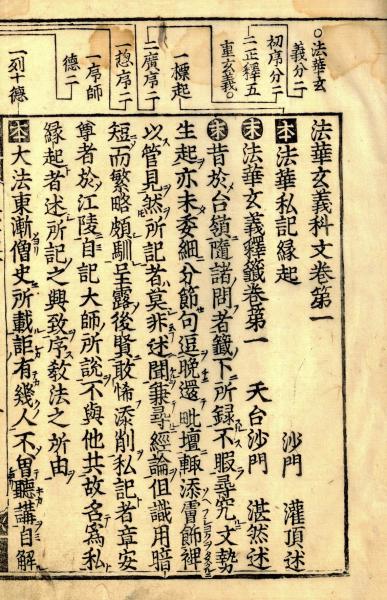 ○法華玄
義分二
初序分二
二正釋五
重玄義○
一標起
二廣序二
一惣序二
一序師
德二
一列十德
法華玄義科文卷第一
本 法華私記緣起 沙門 灌頂述
末 法華玄義釋籤卷第一 天台沙門 湛然述
末 昔於台嶺隨諸問者籤下所錄不暇尋究文勢
生起亦未委細分節句逗晚還毗壇輙添膚飾裨
以管見然所記者莫非述聞兼尋經論但識用暗
短而繁略頗馴呈露後賢敢悕添削私記者章安
尊者於江陵自記大師所說不與他共故名為私
緣起者述所記之興致序教法之所由
本 大法東漸僧史所載詎有幾人不曽聽講自解